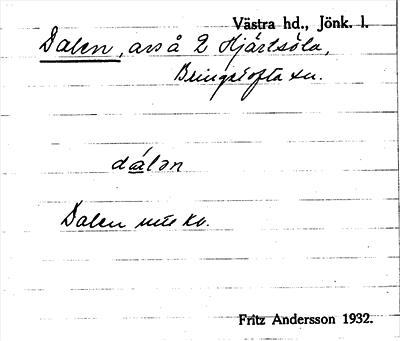 Västra hd., Jönk. l.
Dalen, avs å 2 Hjärtsöla,
Bringetofta sn.
dálən
Dalen ute kv.
Fritz Andersson 1932.